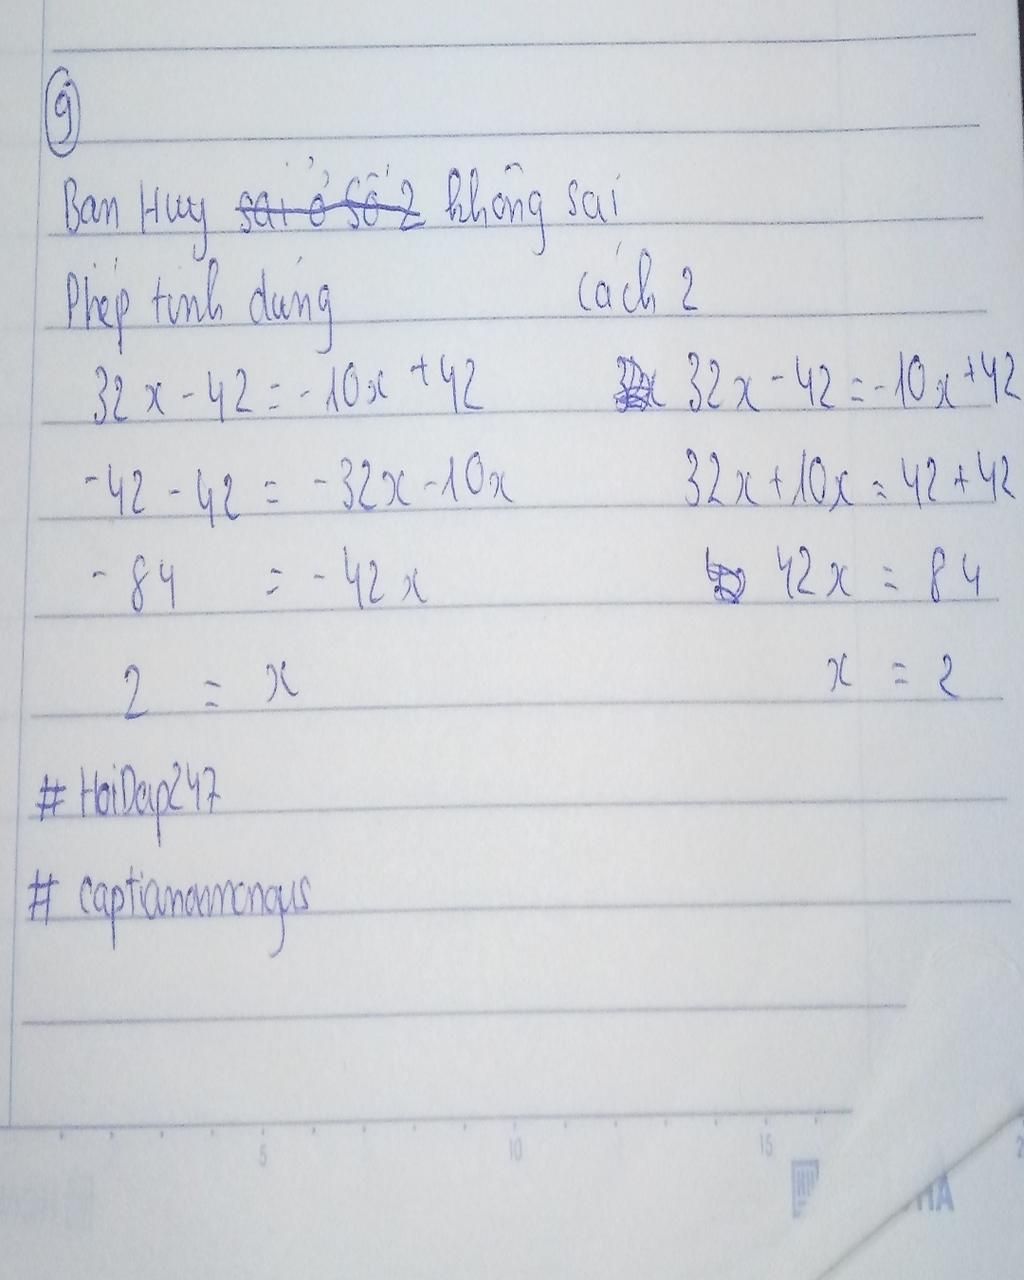 9
Bạn Huy sai ở số 2 không sai
Phép tính đúng
32x - 42 = -10x + 42
-42 - 42 = -32x - 10x
-84 = -42x
2 = x
Cách 2
32x - 42 = -10x + 42
32x + 10x = 42 + 42
42x = 84
x = 2
# HoiDap247
# captianamongus
5 10 15